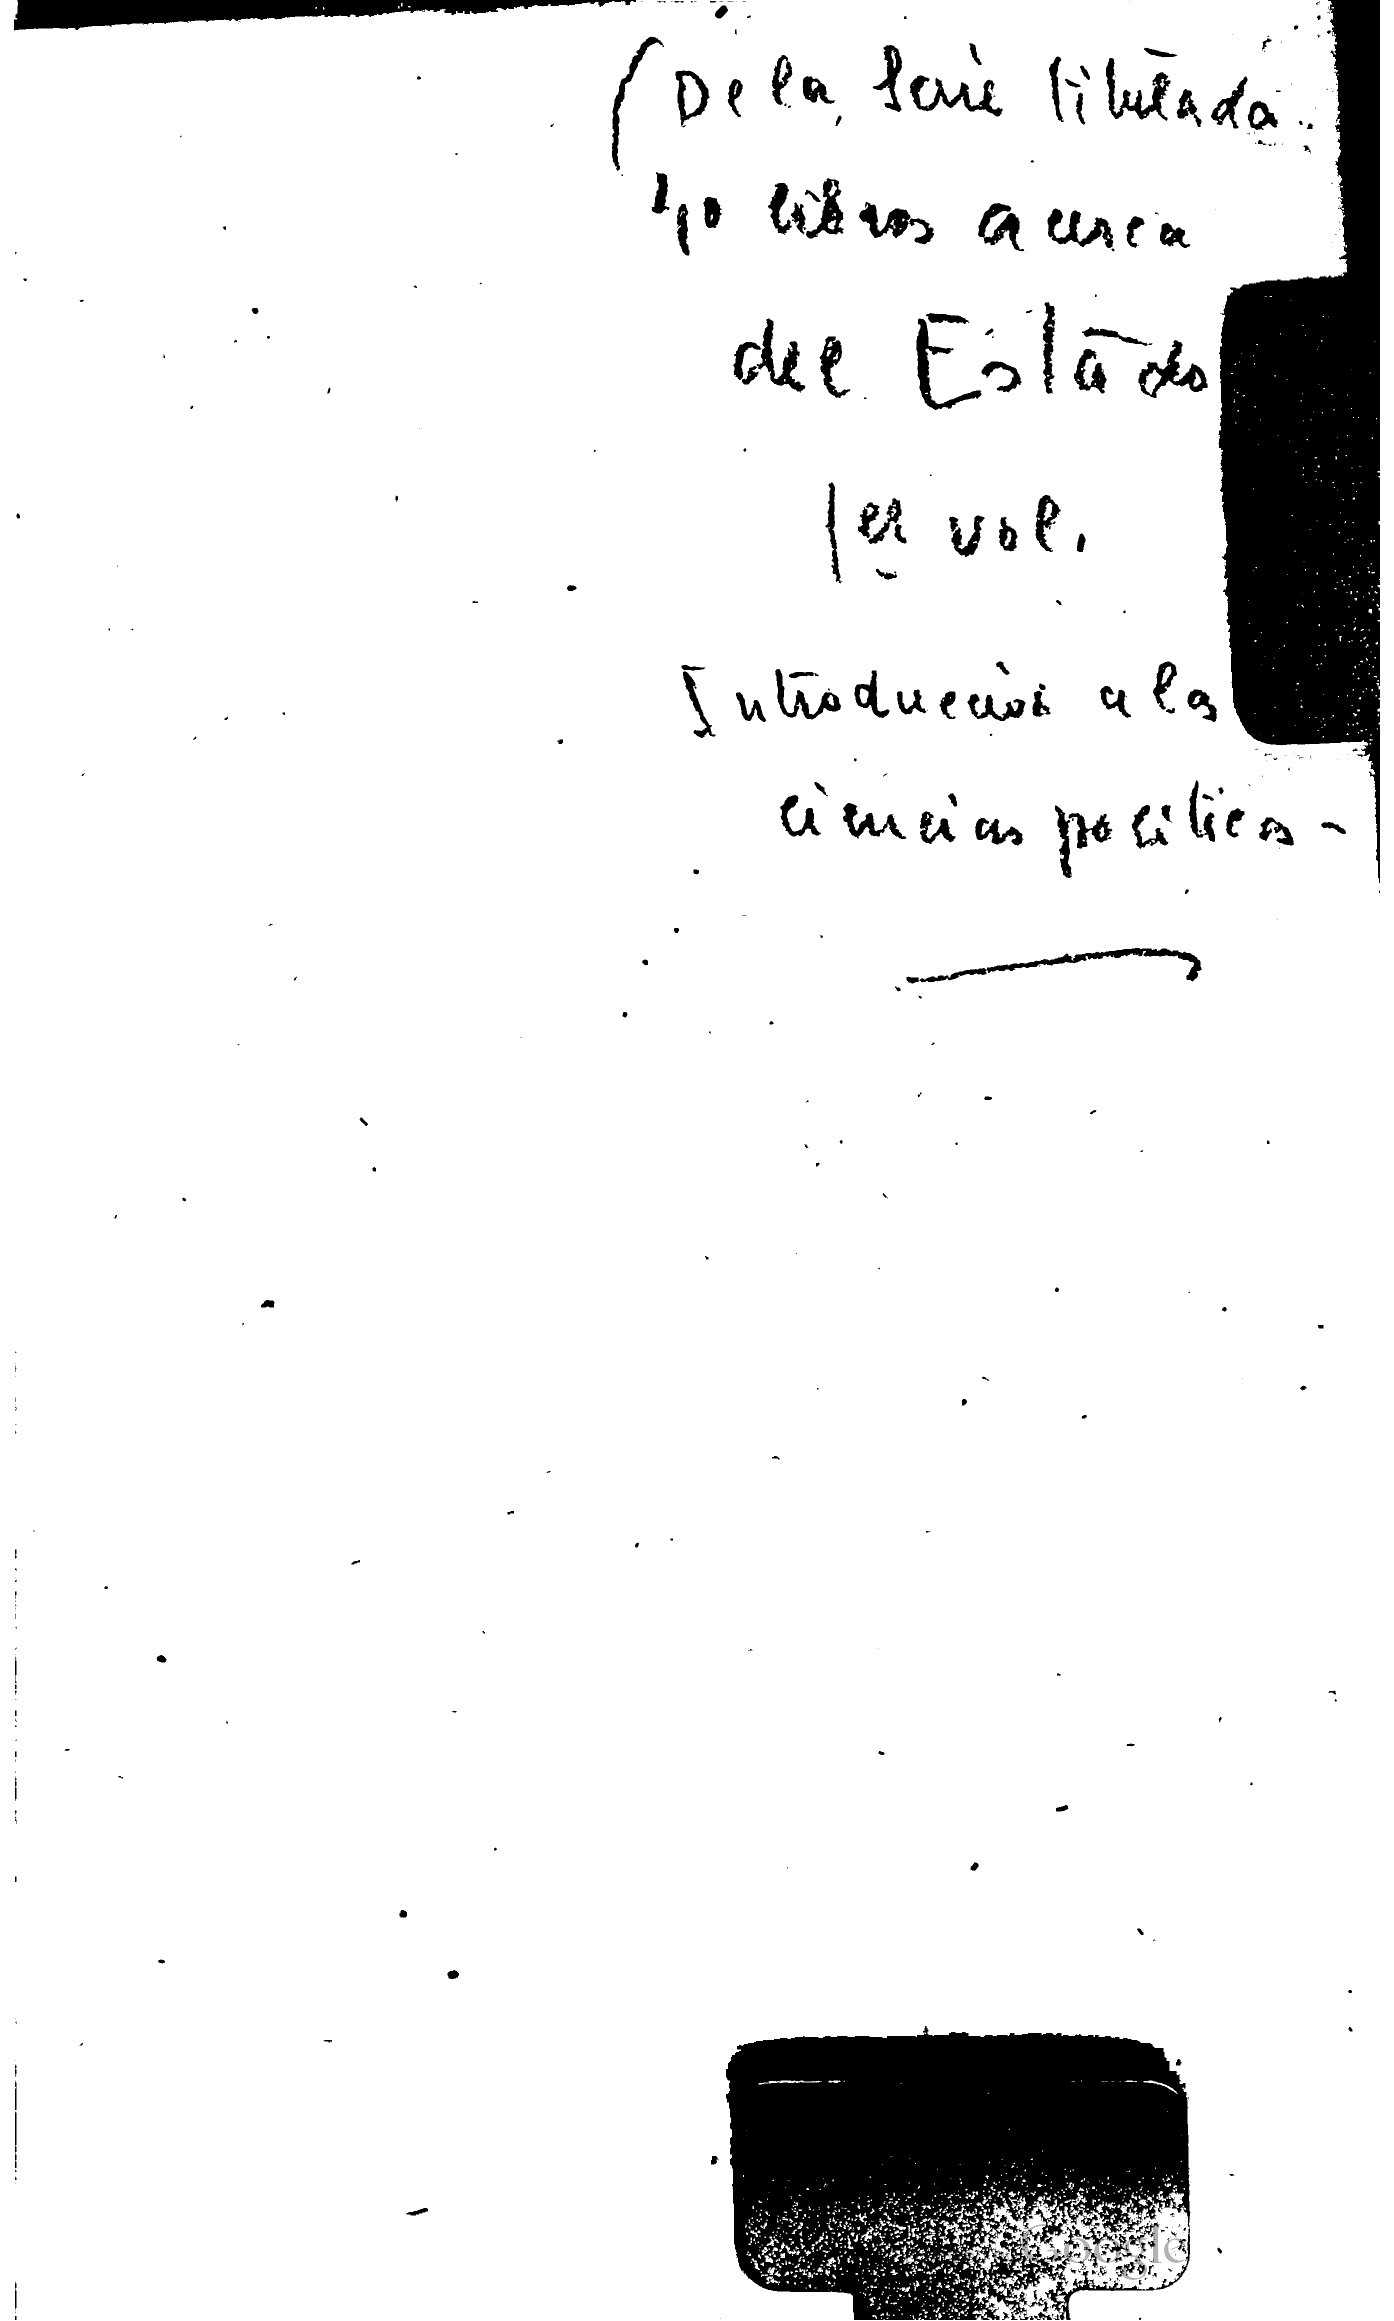 (De la Serie titulada
40 libros acerca
del Estado
1er vol.
Introducción a las
ciencias políticas -
Google